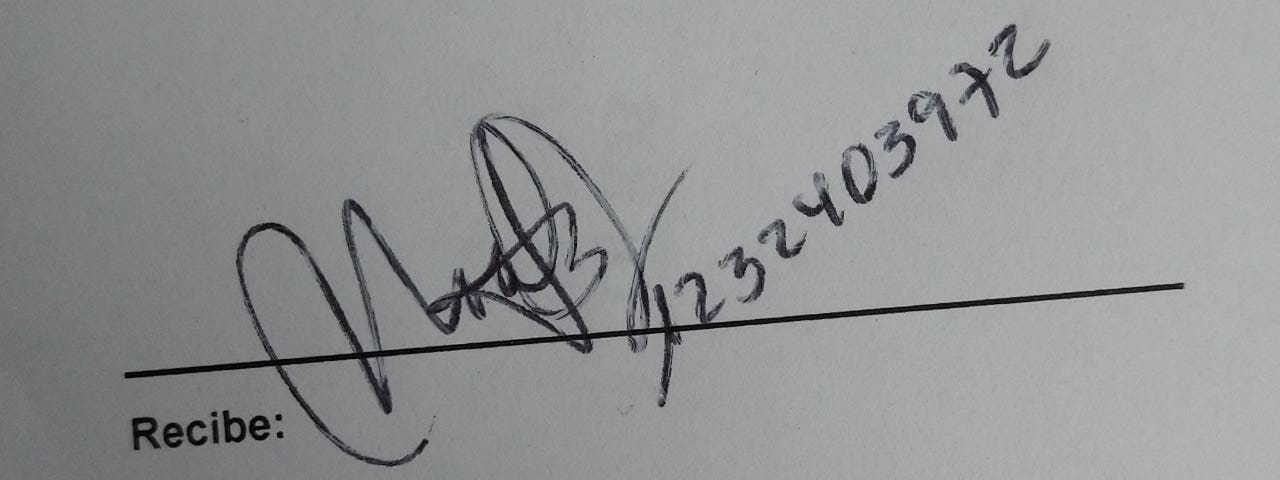 1232403972
Recibe: